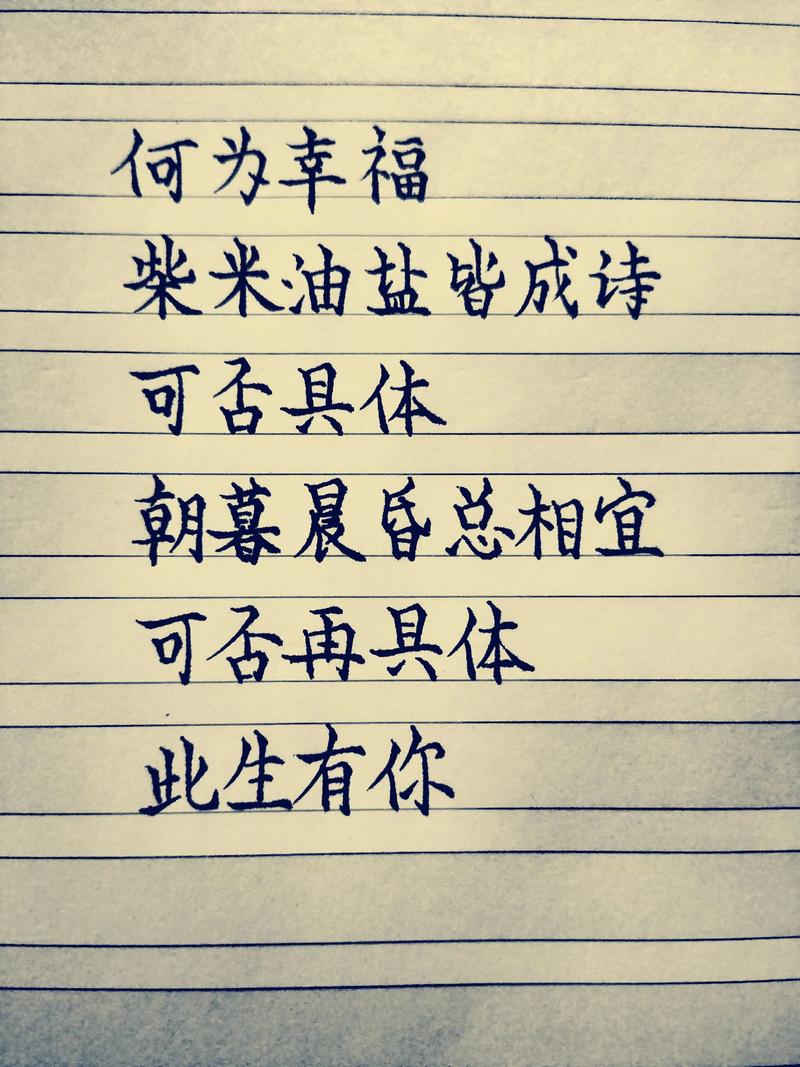 何为幸福
柴米油盐皆成诗
可否具体
朝暮晨昏总相宜
可否再具体
此生有你